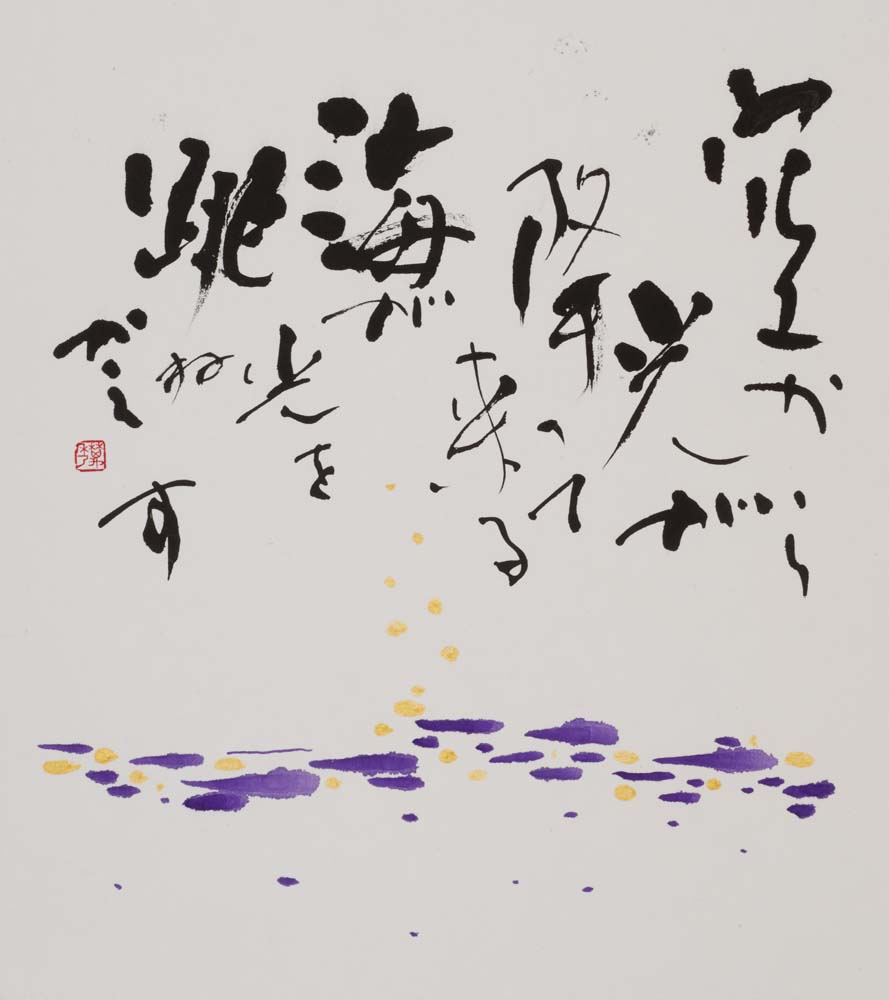 空から
光が
降って
来る
海が
光を
跳ね
かえす